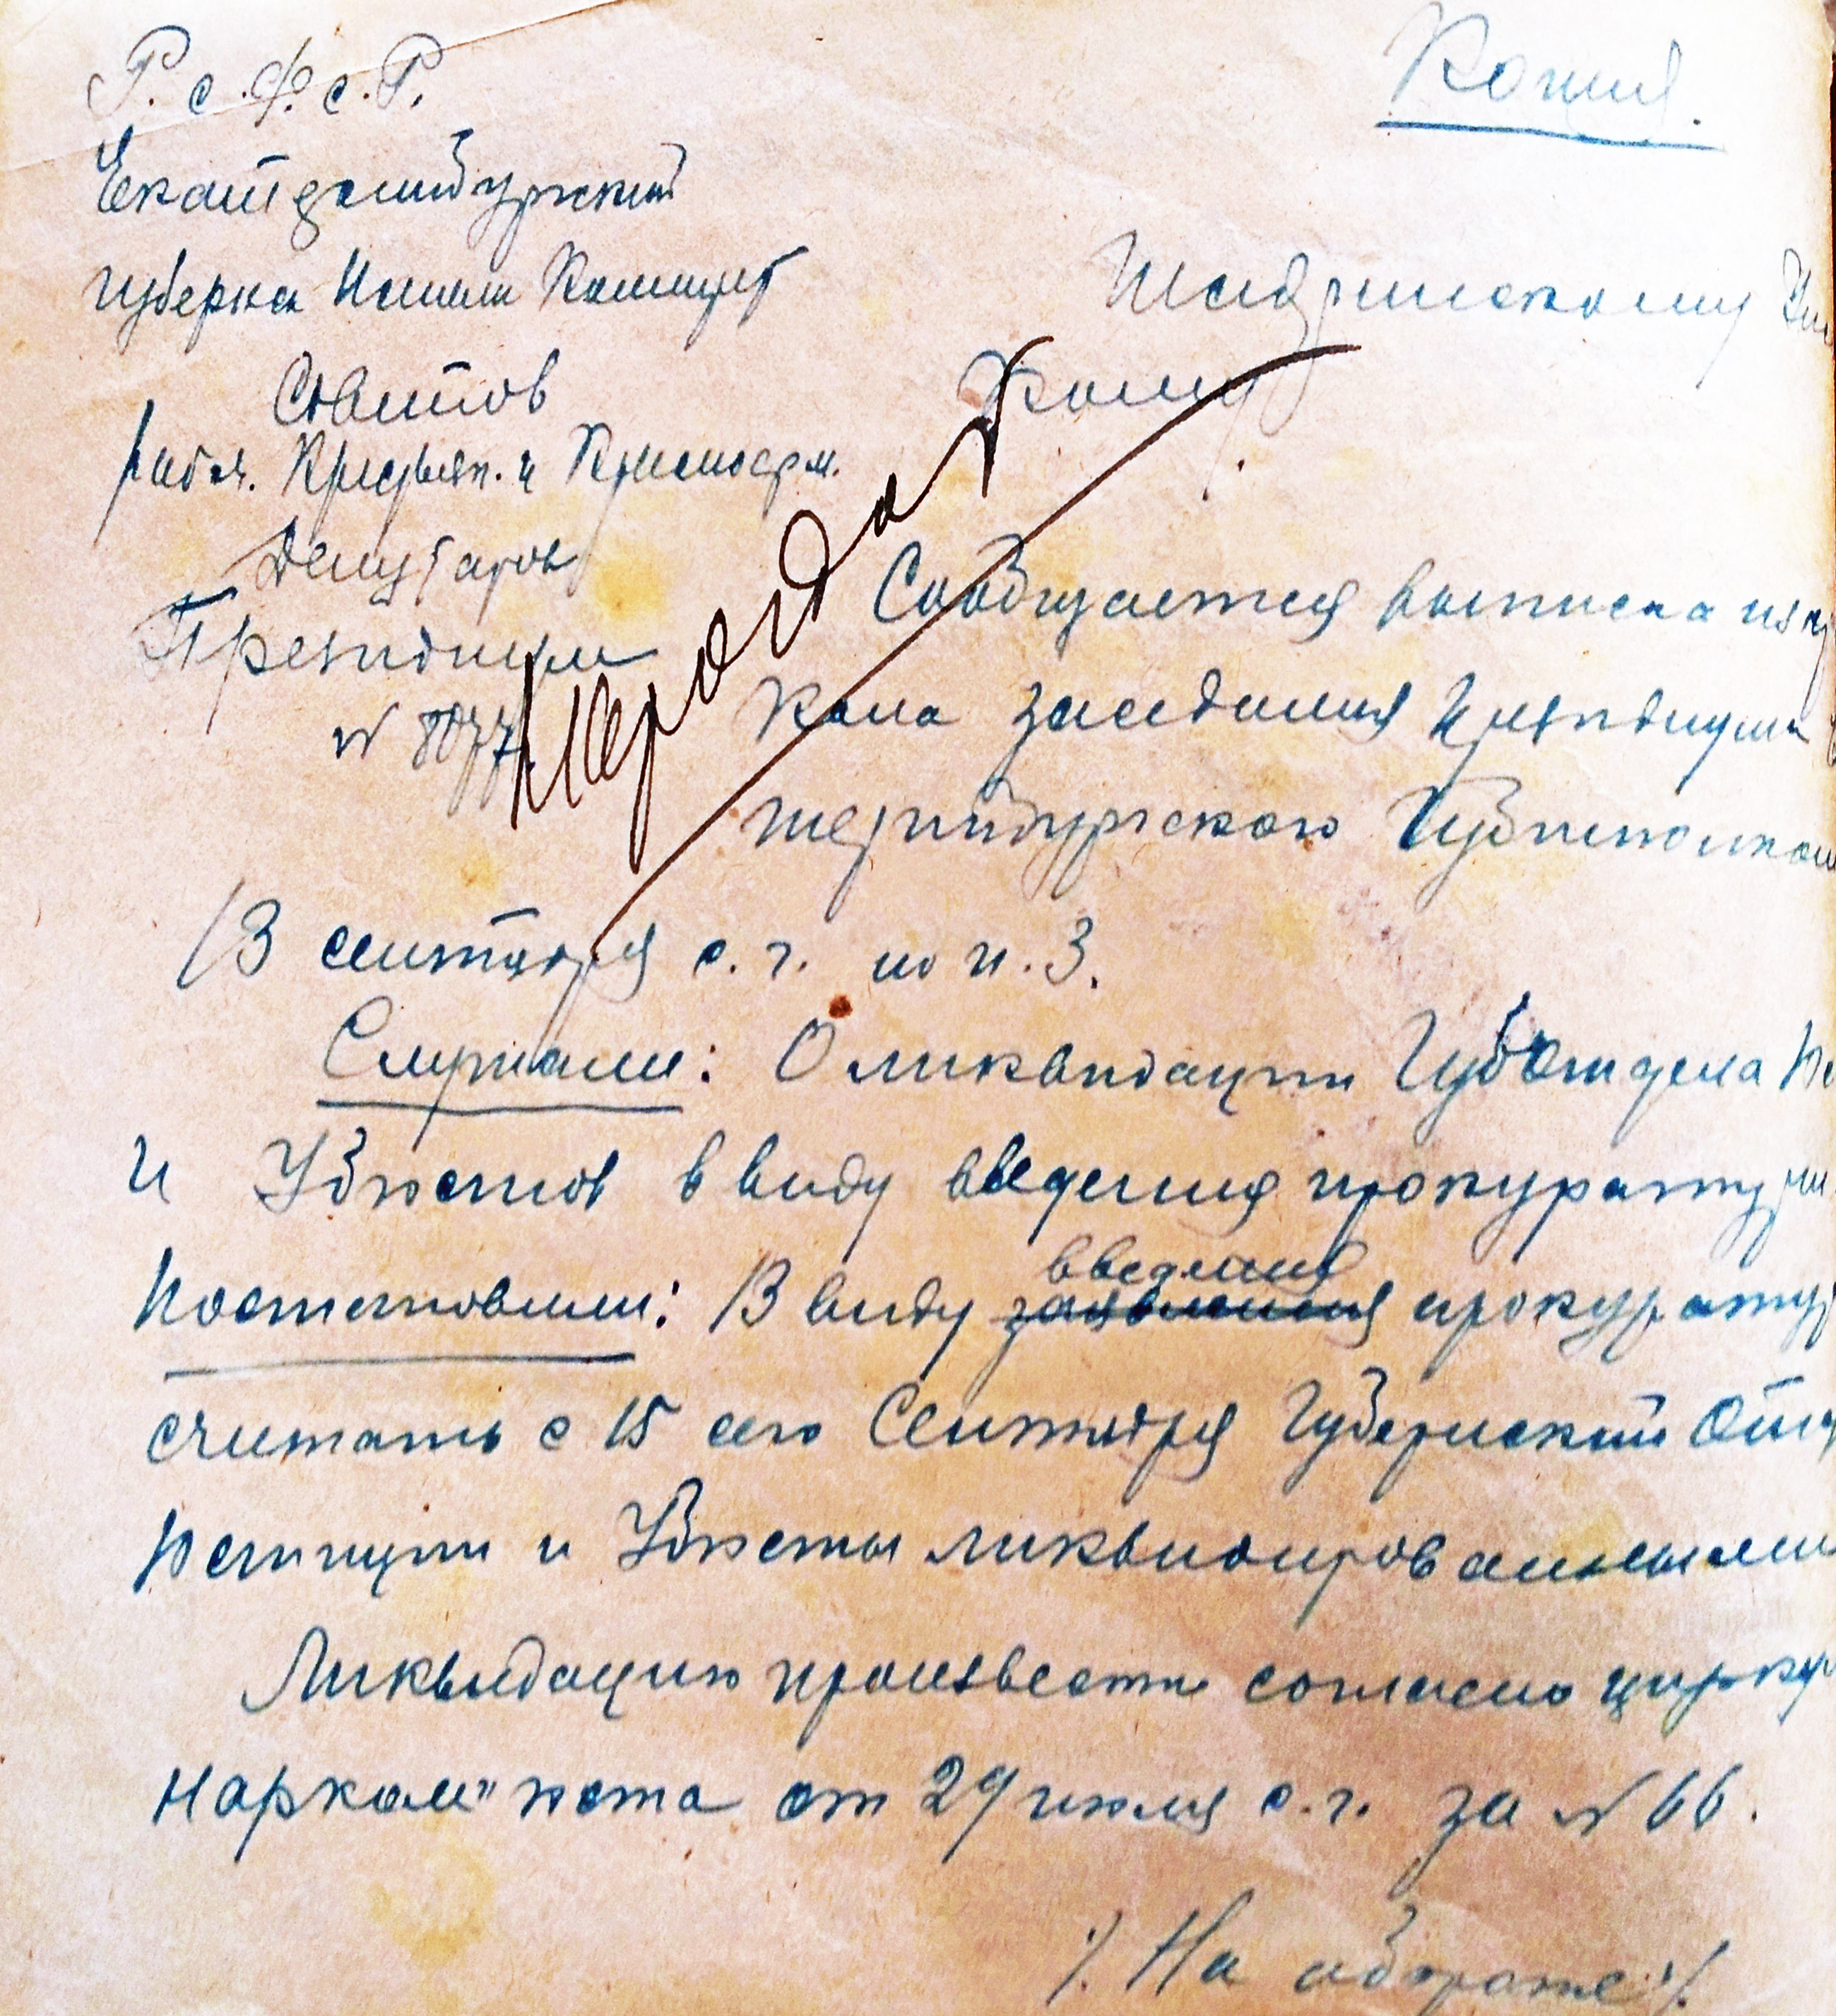 Р.С.Ф.С.Р.
Копия.
Екатеринбургский
губерн. Исполн Комитет
Советов
рабоч. Крестьян. и Красноарм.
Депутатов
Президиум
N 8077.
Шадринскому
кому
Сообщается выписка из
кола заседания Президиума
теринбургского Губисполком
13 сентября с.г. по п. 3.
Слушали: О ликвидации Губотдела Ю
и Убюстов в виду введения прокуратуры
Постановили: В виду введения заявления прокурату
считать с 15 сего Сентября Губернский Отд
Юстиции и Убюсты ликвидированными
Ликвидацию произвести согласно цирку
Нарком"юста от 29 июля с.г. за N 66.
./. На обороте ./.